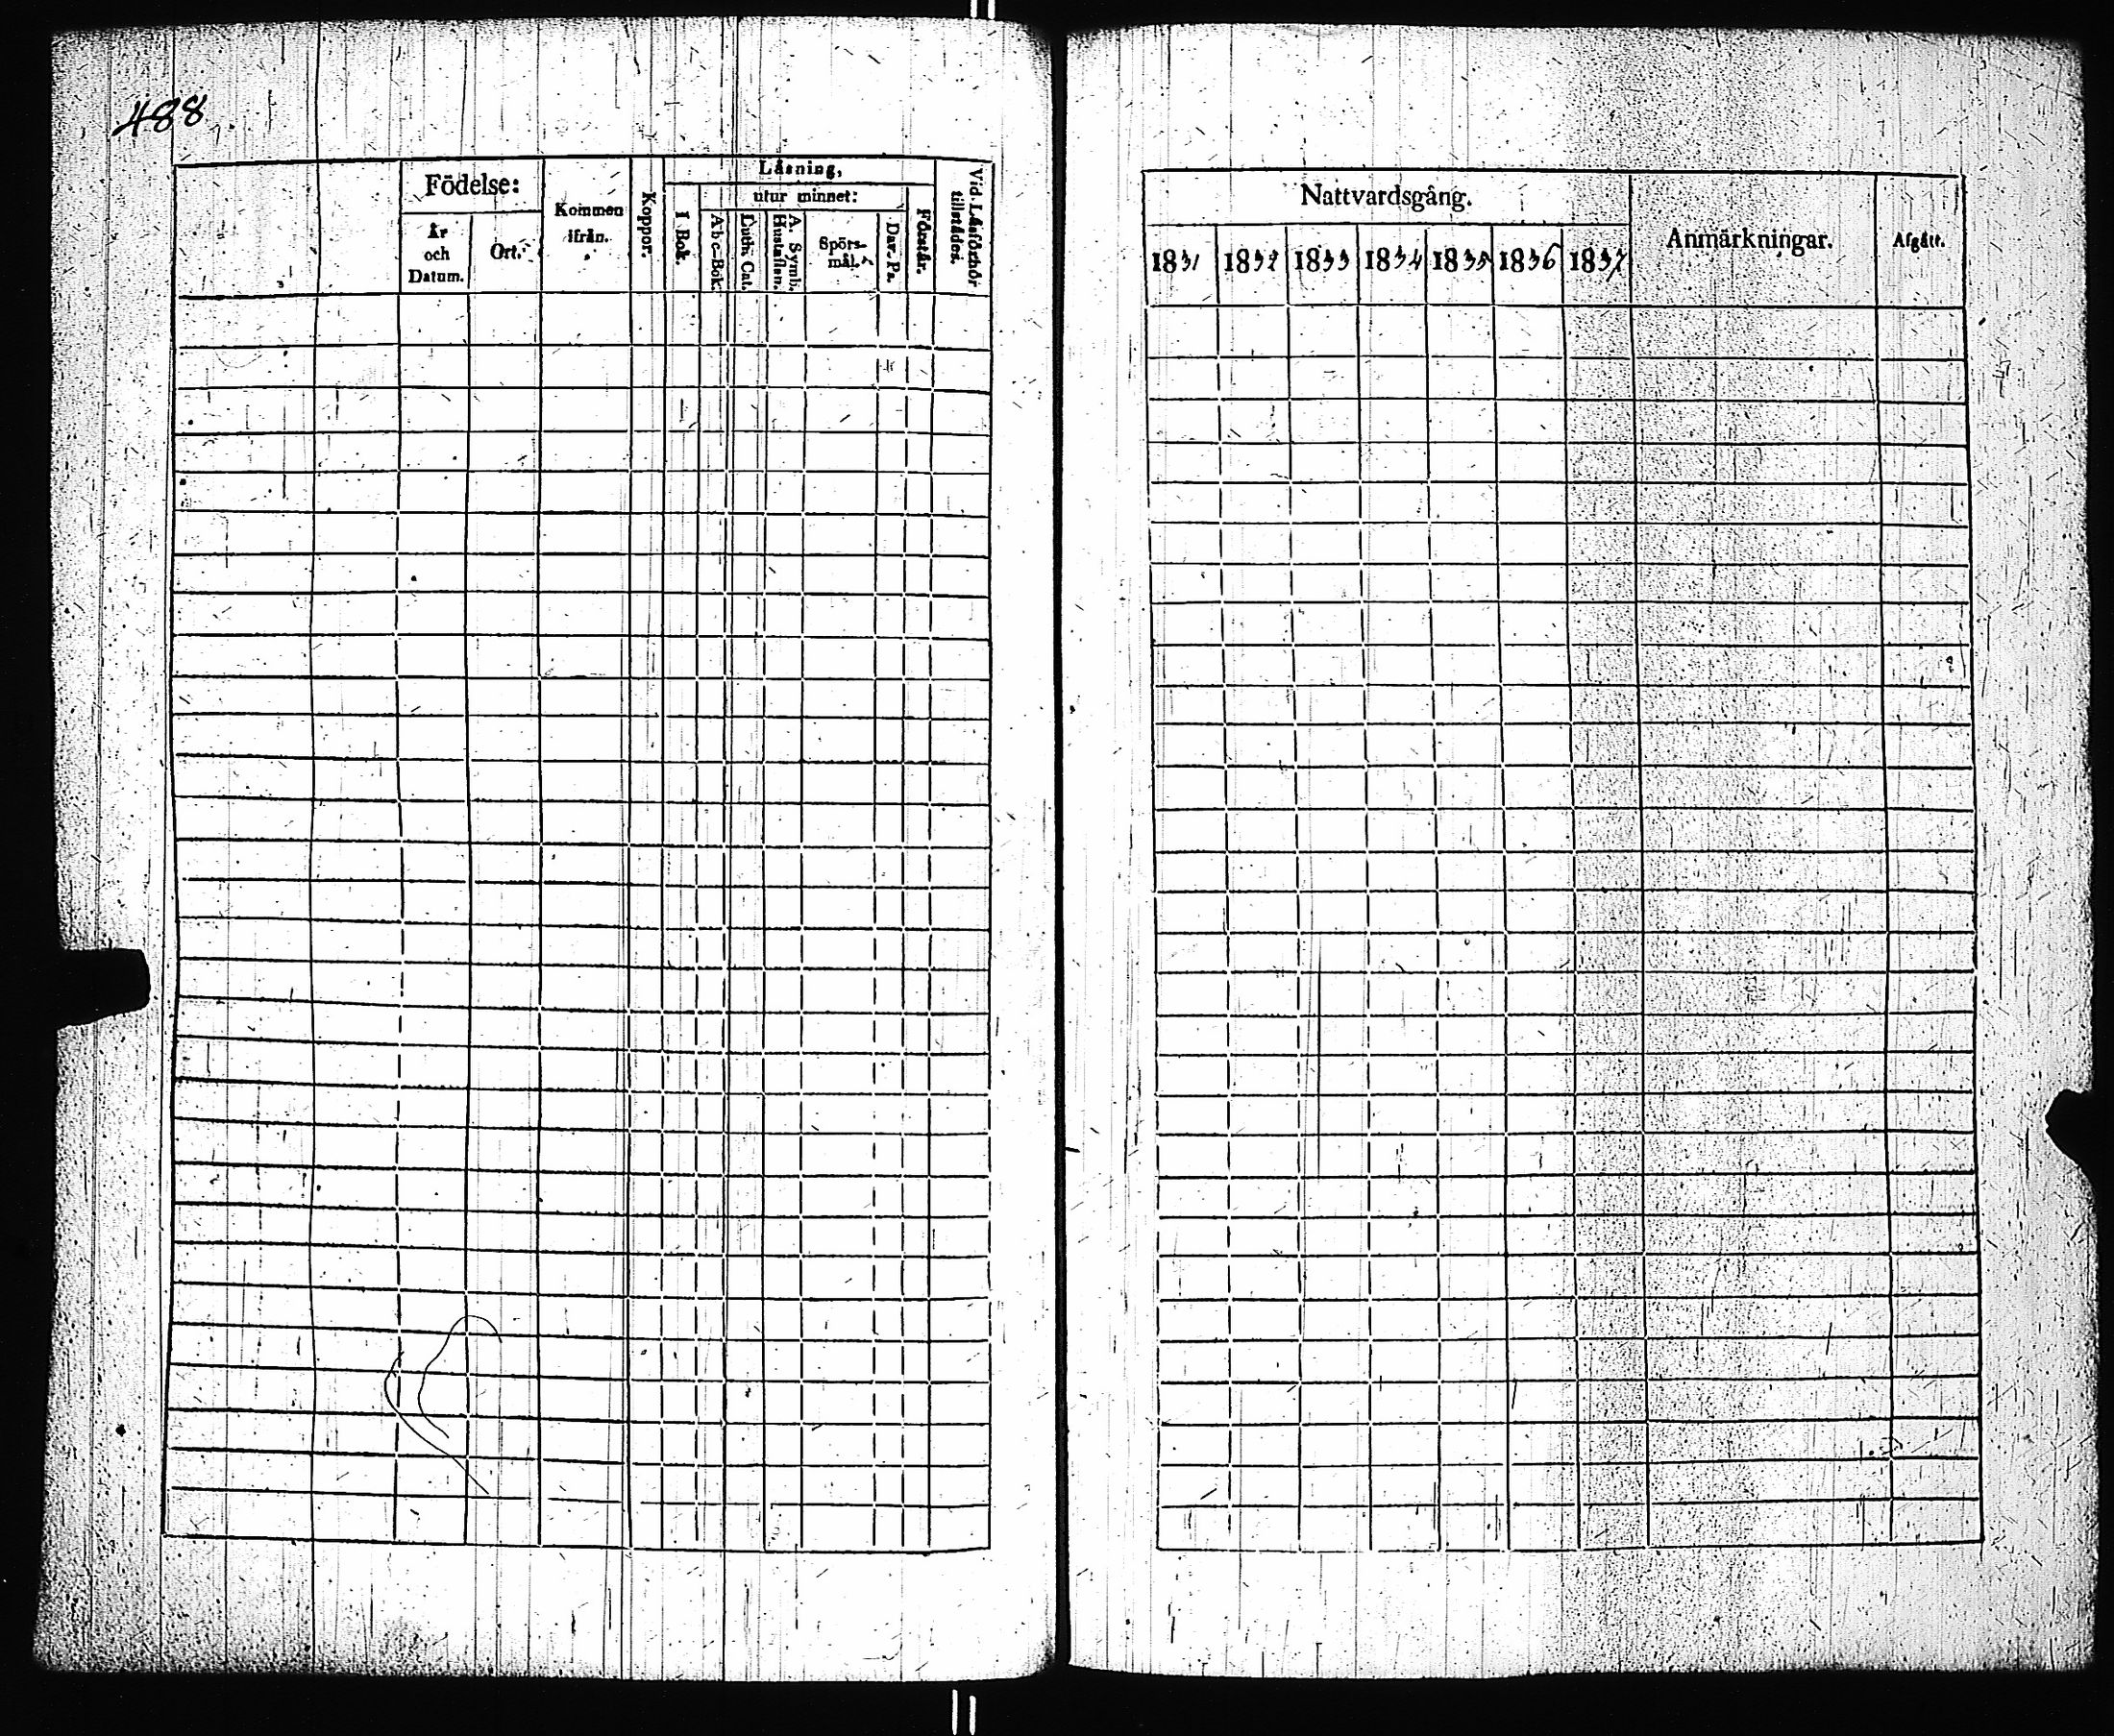 488
Födelse:
År
och
Datum.
Ort.
Kommen
ifrån.
Koppor.
Läsning,
utur minnet:
I. Bok.
Abc-Bok.
Luth. Cat.
A. Symb.
Hustaflan.
Spörs-
mål.
Dav. Ps.
Förstår.
Vid Läsförhör
tillstädes.
Nattvardsgång.
1831 1832 1833 1834 1835 1836 1837
Anmärkningar.
Afgått.